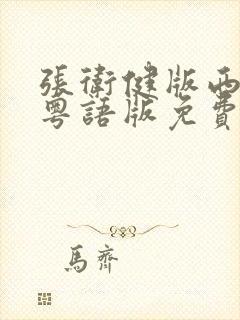 張衛健版西
粵語版免費
馬齊